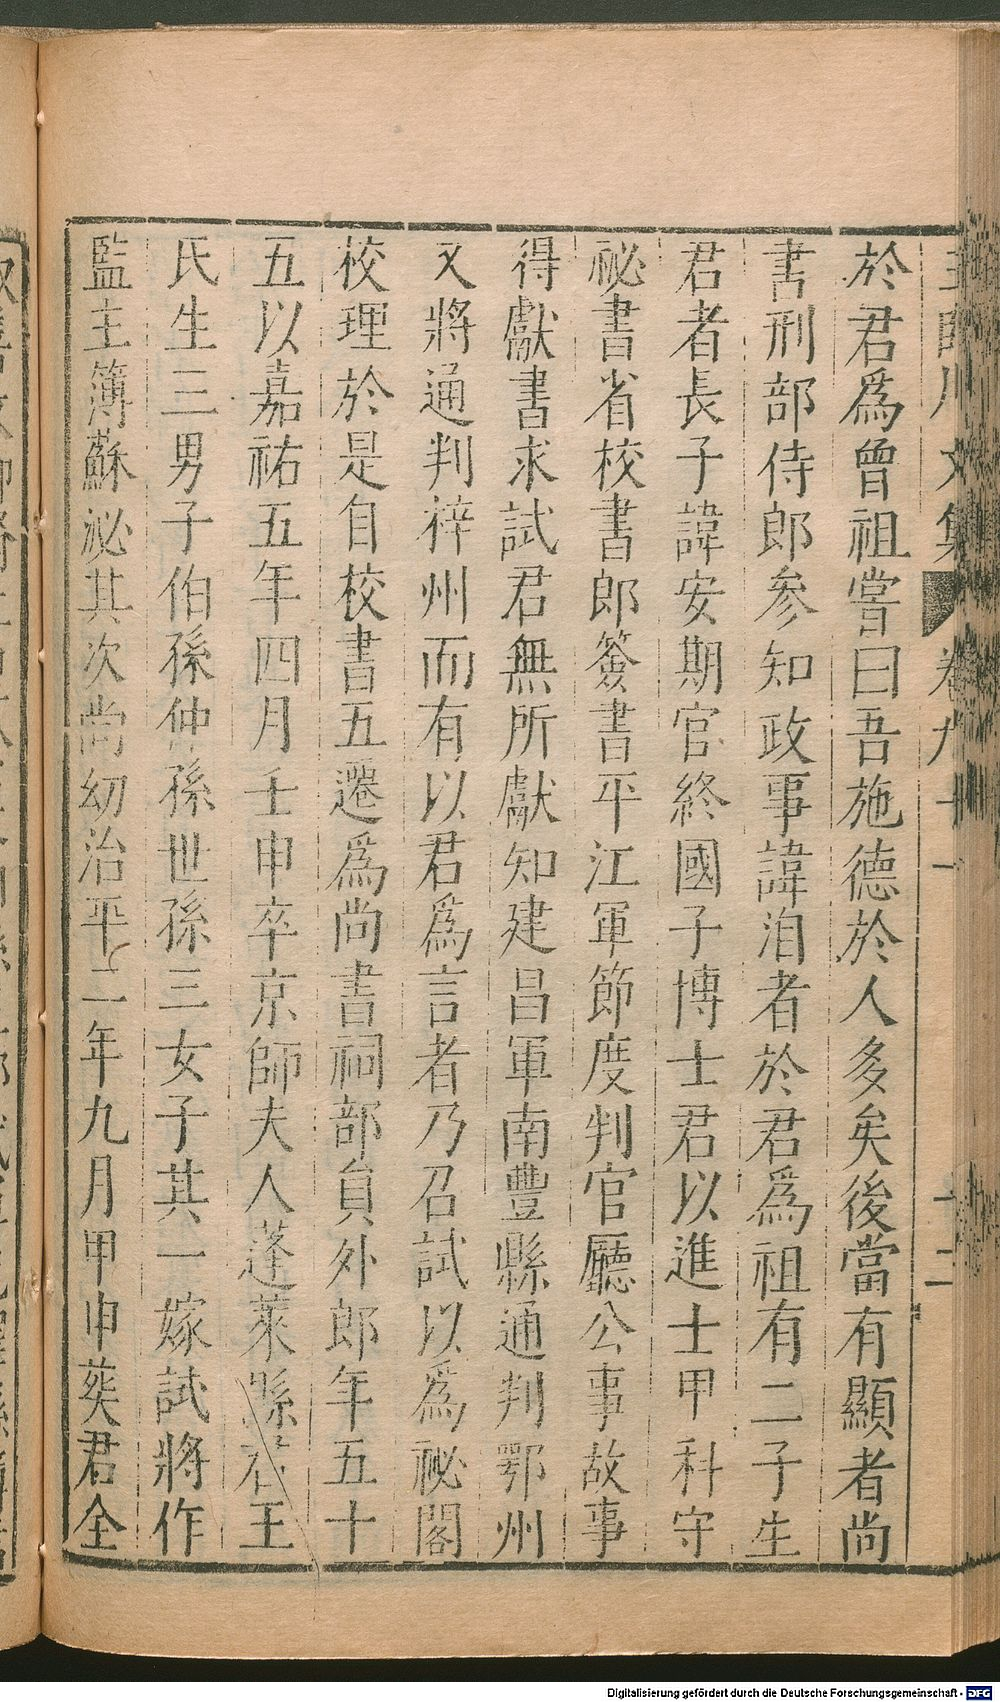 王臨川文集 卷九十一 十二
於君爲曾祖嘗曰吾施德於人多矣後當有顯者尚
書刑部侍郎參知政事諱洎者於君爲祖有二子生
君者長子諱安期官終國子博士君以進士甲科守
祕書省校書郎簽書平江軍節度判官廳公事故事
得獻書求試君無所獻知建昌軍南豐縣通判鄂州
又將通判梓州而有以君爲言者乃召試以爲祕閣
校理於是自校書五遷爲尚書祠部員外郎年五十
五以嘉祐五年四月壬申卒京師夫人蓬萊縣君王
氏生三男子伯孫仲孫世孫三女子其一嫁試將作
監主簿蘇泌其次尚幼治平二年九月甲申葬君全
Digitalisierung gefördert durch die Deutsche Forschungsgemeinschaft - DFG